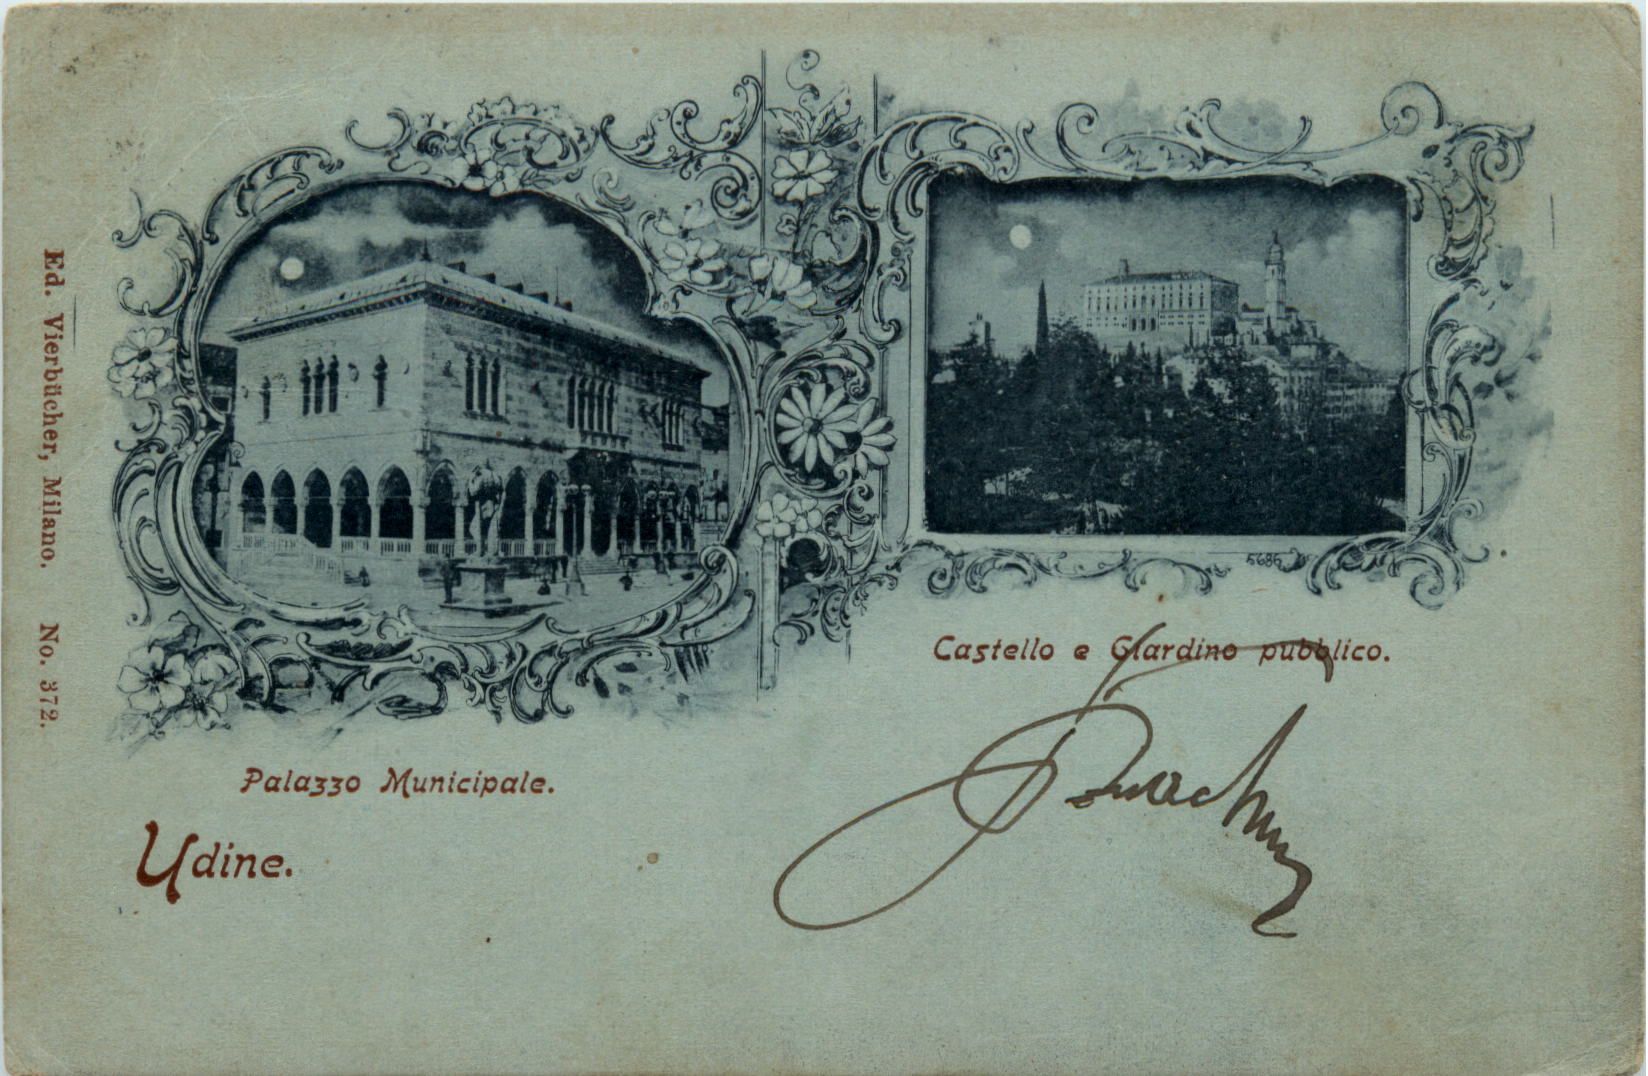 Ed. Vierbücher, Milano. No. 372.
5686
Castello e Giardino pubblico.
Palazzo Municipale.
Udine.